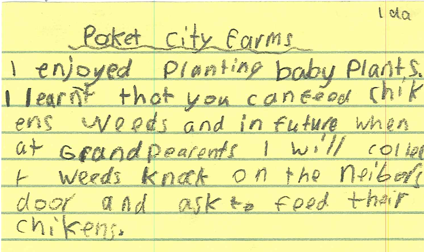 Ida
Poket City Farms
I enjoyed Planting baby Plants.
I learnt that you canfeed chik
ens weeds and in future when
at Grandpearents I will collec
t weeds knock on the Neibers
door and ask to feed their
chikens.